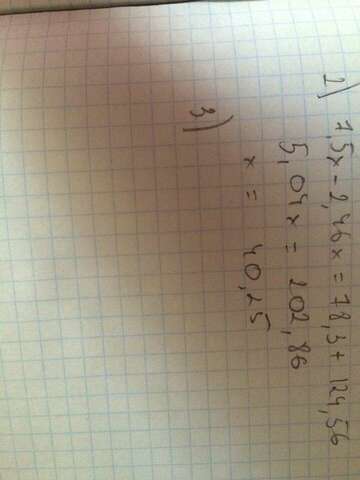 2) 7,5x - 2,46x = 78,3 + 124,56
5,04x = 202,86
x = 40,25
3)